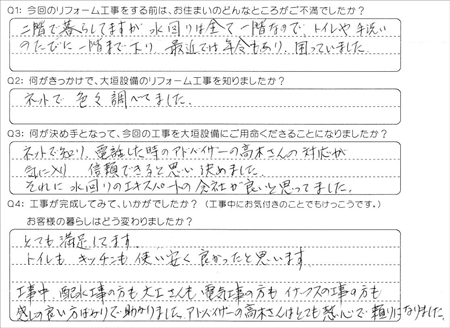 Q1: 今回のリフォーム工事をする前は、お住まいのどんなところがご不満でしたか?
二階で暮らしてますが水回りは全て一階なので、トイレや手洗い
のたびに一階まで下り、最近では年令もあり、困っていました。
Q2: 何がきっかけで、大垣設備のリフォーム工事を知りましたか?
ネットで色々調べてました。
Q3: 何が決め手となって、今回の工事を大垣設備にご用命くださることになりましたか?
ネットで知り、電話した時のアドバイザーの高木さんの対応が
気に入り 信頼できると思い決めました。
それに水回りのエキスパートの会社が良いと思ってました。
Q4: 工事が完成してみて、いかがでしたか? (工事中にお気付きのことでもけっこうです。)
お客様の暮らしはどう変わりましたか?
とても満足してます。
トイレも、キッチンも使い安く良かったと思います。
工事中、配水工事の方も大工さんも、電気工事の方も イナックスの工事の方も
感じの良い方ばかりで助かりました。アドバイザーの高木さんはとても 心で頼りになりました。